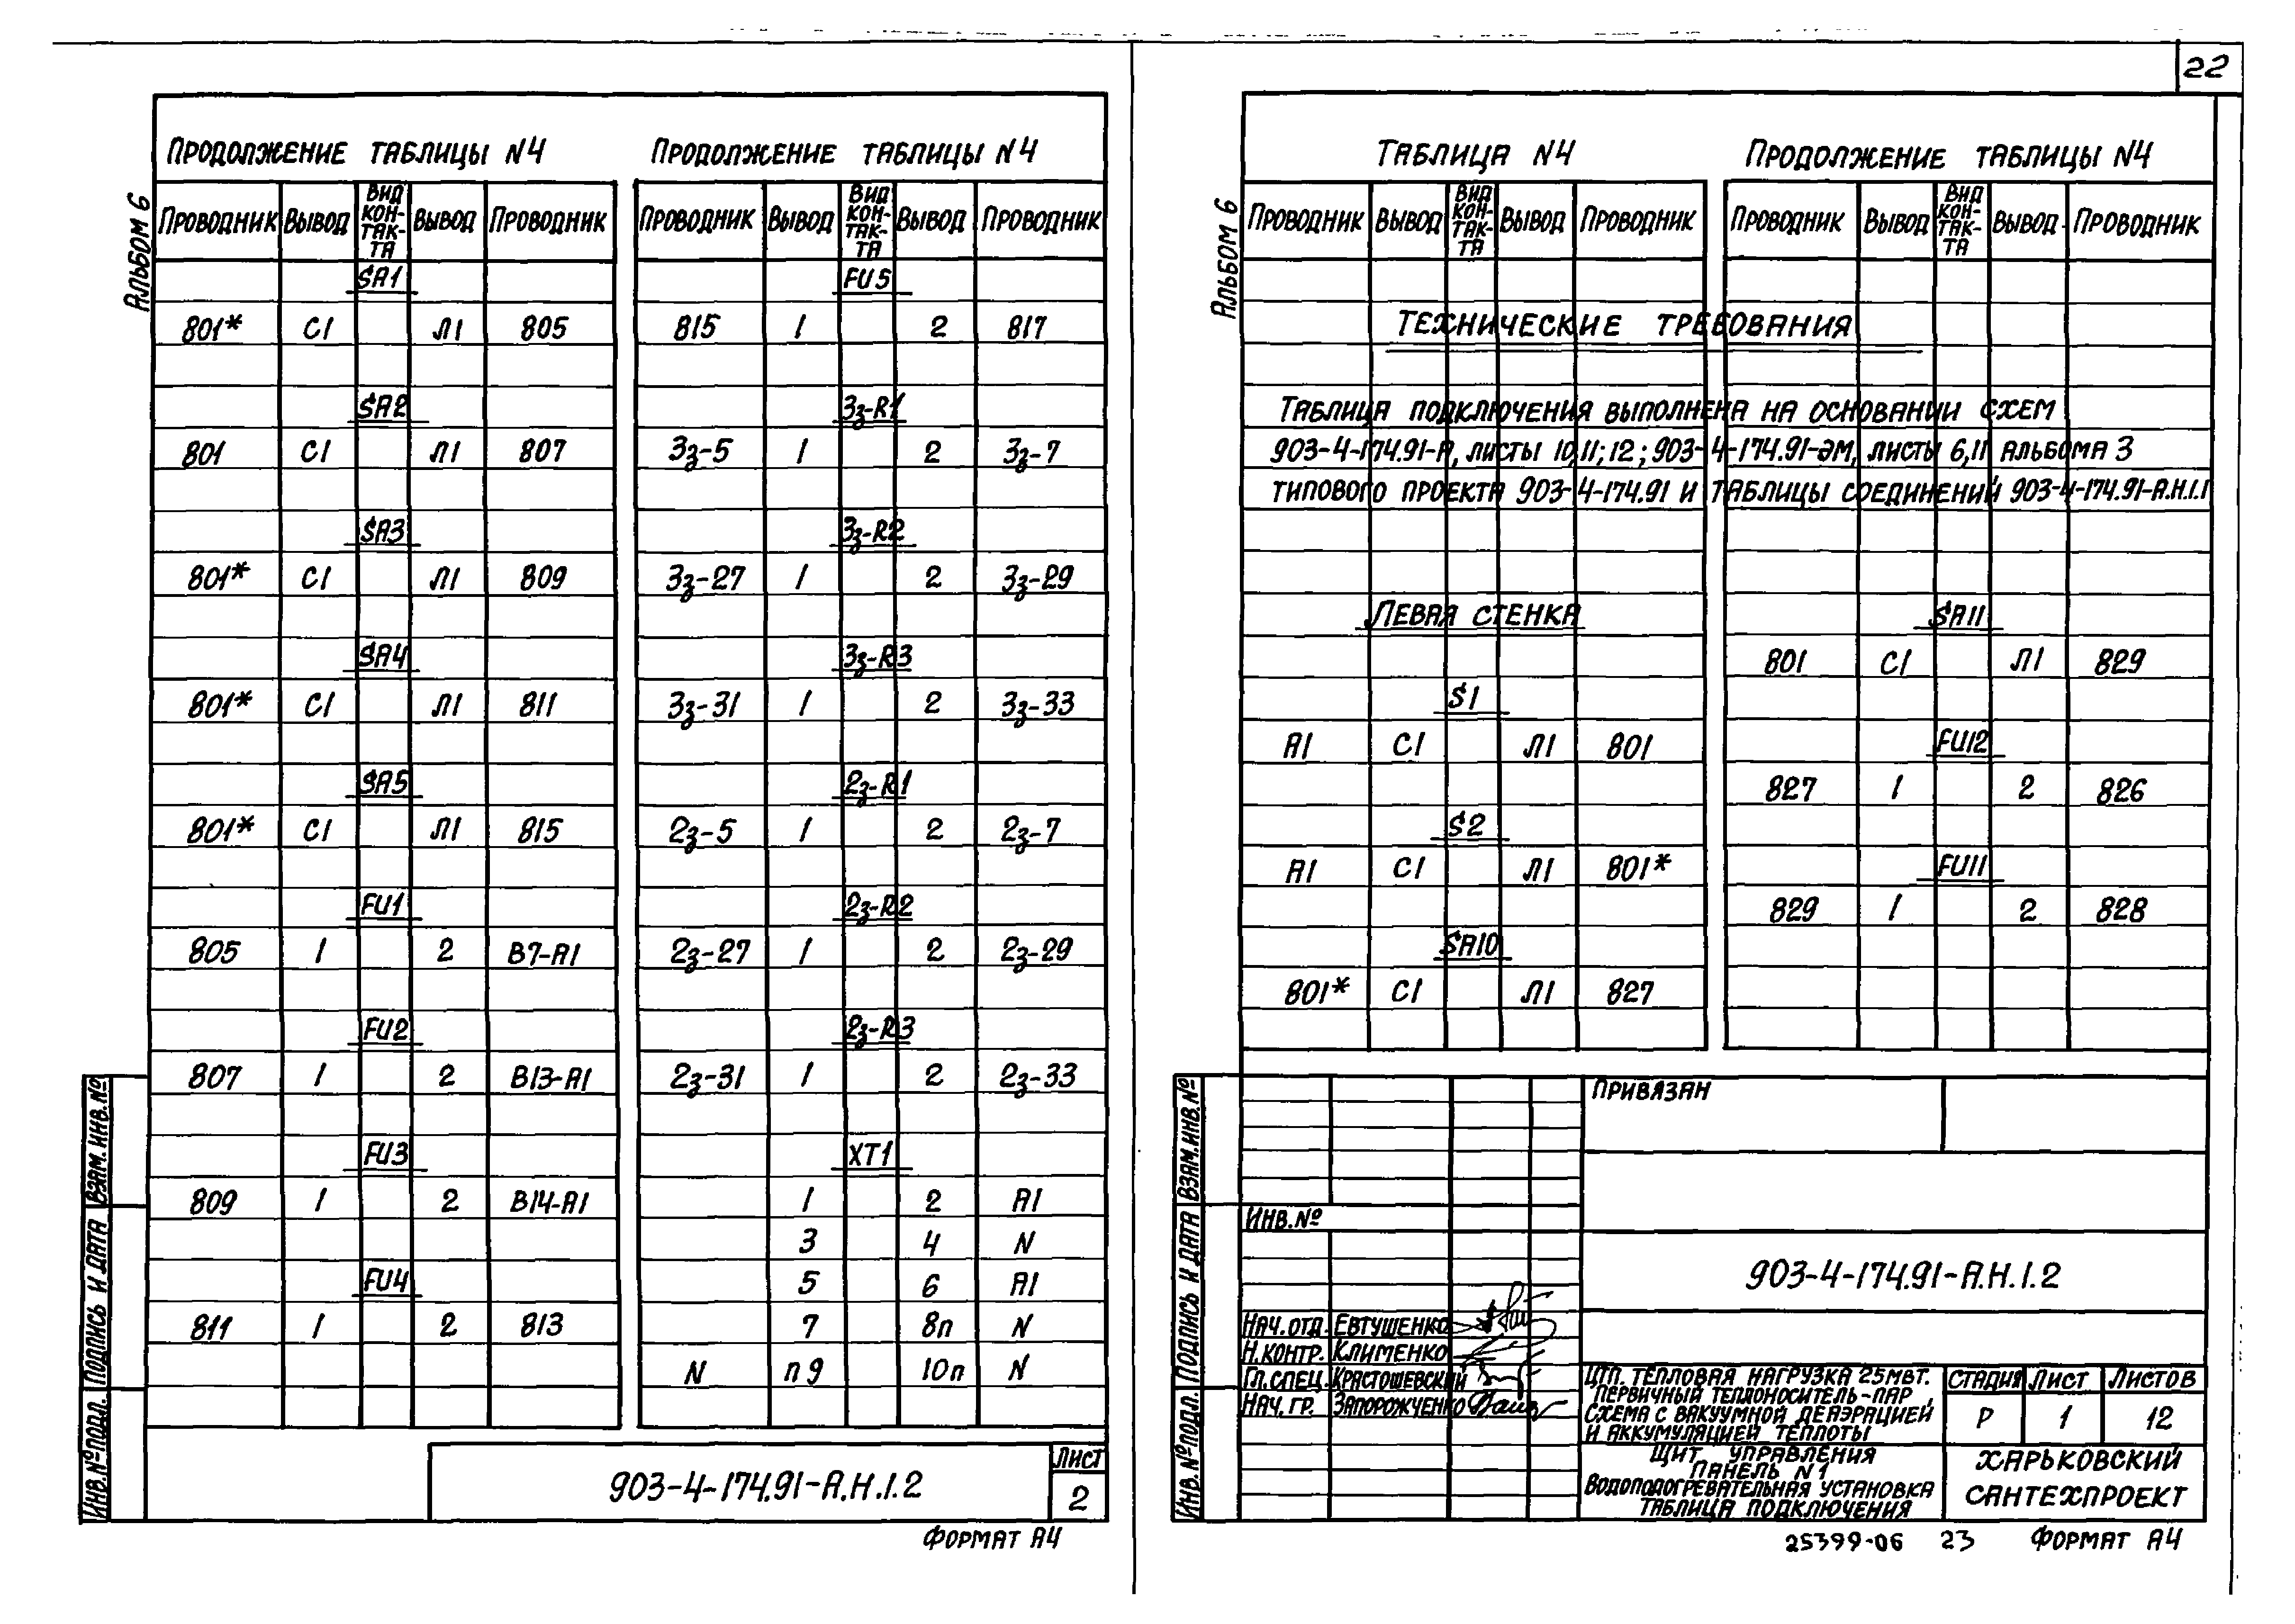 22
Альбом 6
Продолжение таблицы N4
Проводник Вывод Вид контакта Вывод Проводник
SA1
801* С1 Л1 805
SA2
801 С1 Л1 807
SA3
801* С1 Л1 809
SA4
801* С1 Л1 811
SA5
801* С1 Л1 815
FU1
805 1 2 В7-А1
FU2
807 1 2 В13-А1
FU3
809 1 2 В14-А1
FU4
811 1 2 813
Продолжение таблицы N4
Проводник Вывод Вид контакта Вывод Проводник
FU5
815 1 2 817
3з-R1
3з-5 1 2 3з-7
3з-R2
3з-27 1 2 3з-29
3з-R3
3з-31 1 2 3з-33
2з-R1
2з-5 1 2 2з-7
2з-R2
2з-27 1 2 2з-29
2з-R3
2з-31 1 2 2з-33
ХТ1
1 2 А1
3 4 N
5 6 А1
7 8п N
N п9 10п N
Взам. инв. №
Подпись и дата
Инв. № подл.
903-4-174.91-А.Н.1.2
Лист
2
Формат А4
Альбом 6
Таблица N4
Проводник Вывод Вид контакта Вывод Проводник
Продолжение таблицы N4
Проводник Вывод Вид контакта Вывод Проводник
Технические требования
Таблица подключения выполнена на основании схем
903-4-174.91-А, листы 10,11;12; 903-4-174.91-ЭМ, листы 6,11 альбома 3
типового проекта 903-4-174.91 и таблицы соединений 903-4-174.91-А.Н.1.1
Левая стенка
S1
А1 С1 Л1 801
S2
А1 С1 Л1 801*
SA10
801* С1 Л1 827
SA11
801 С1 Л1 829
FU12
827 1 2 826
FU11
829 1 2 828
Взам. инв. №
Подпись и дата
Инв. № подл.
Привязан
Инв. №
903-4-174.91-А.Н.1.2
Нач. отд. Евтушенко
Н. контр. Клименко
Гл. спец. Крастошевский
Нач. гр. Запорожченко
ЦТП. Тепловая нагрузка 25МВт.
Первичный теплоноситель-пар,
схема с вакуумной деаэрацией
и аккумуляцией теплоты
Стадия Лист Листов
Р 1 12
Щит управления
Панель N1
Водоподогревательная установка
Таблица подключения
Харьковский
Сантехпроект
25399-06 23 Формат А4